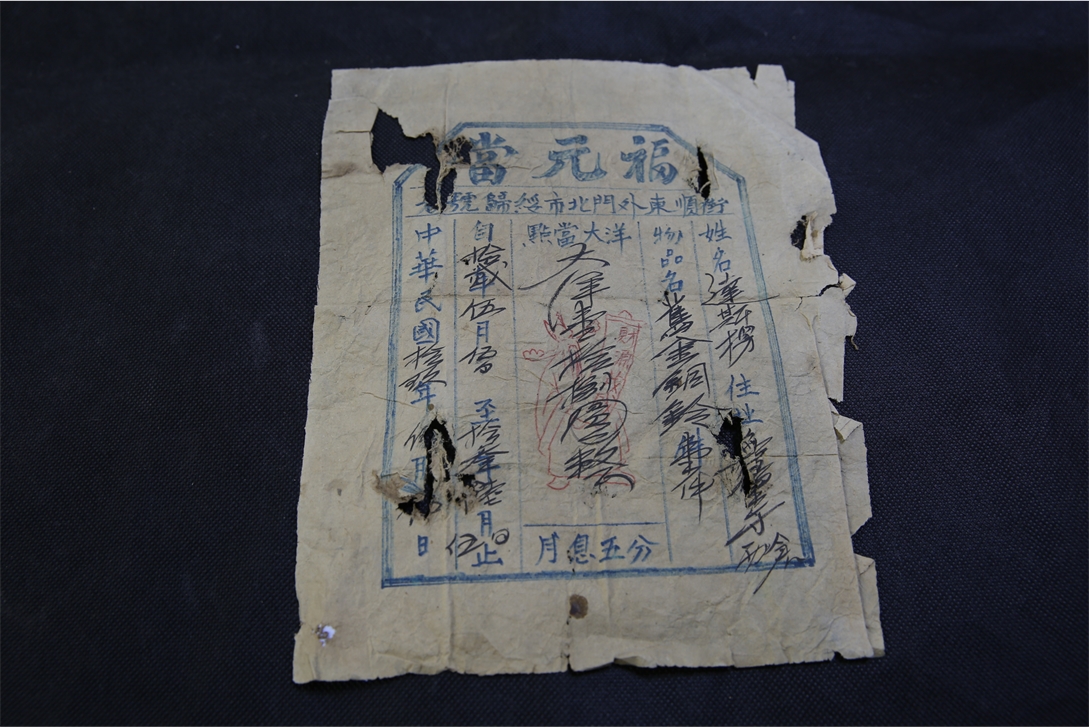 福元當
街順東外門北市綏歸號
姓名達斯楞 住址
物品名舊金銅鈴 件
洋大當點
大洋壹拾捌圓整
財源
分五息月
自拾貳年伍月伍日 至拾叁年陸月伍日止
中華民國拾貳年伍月 日